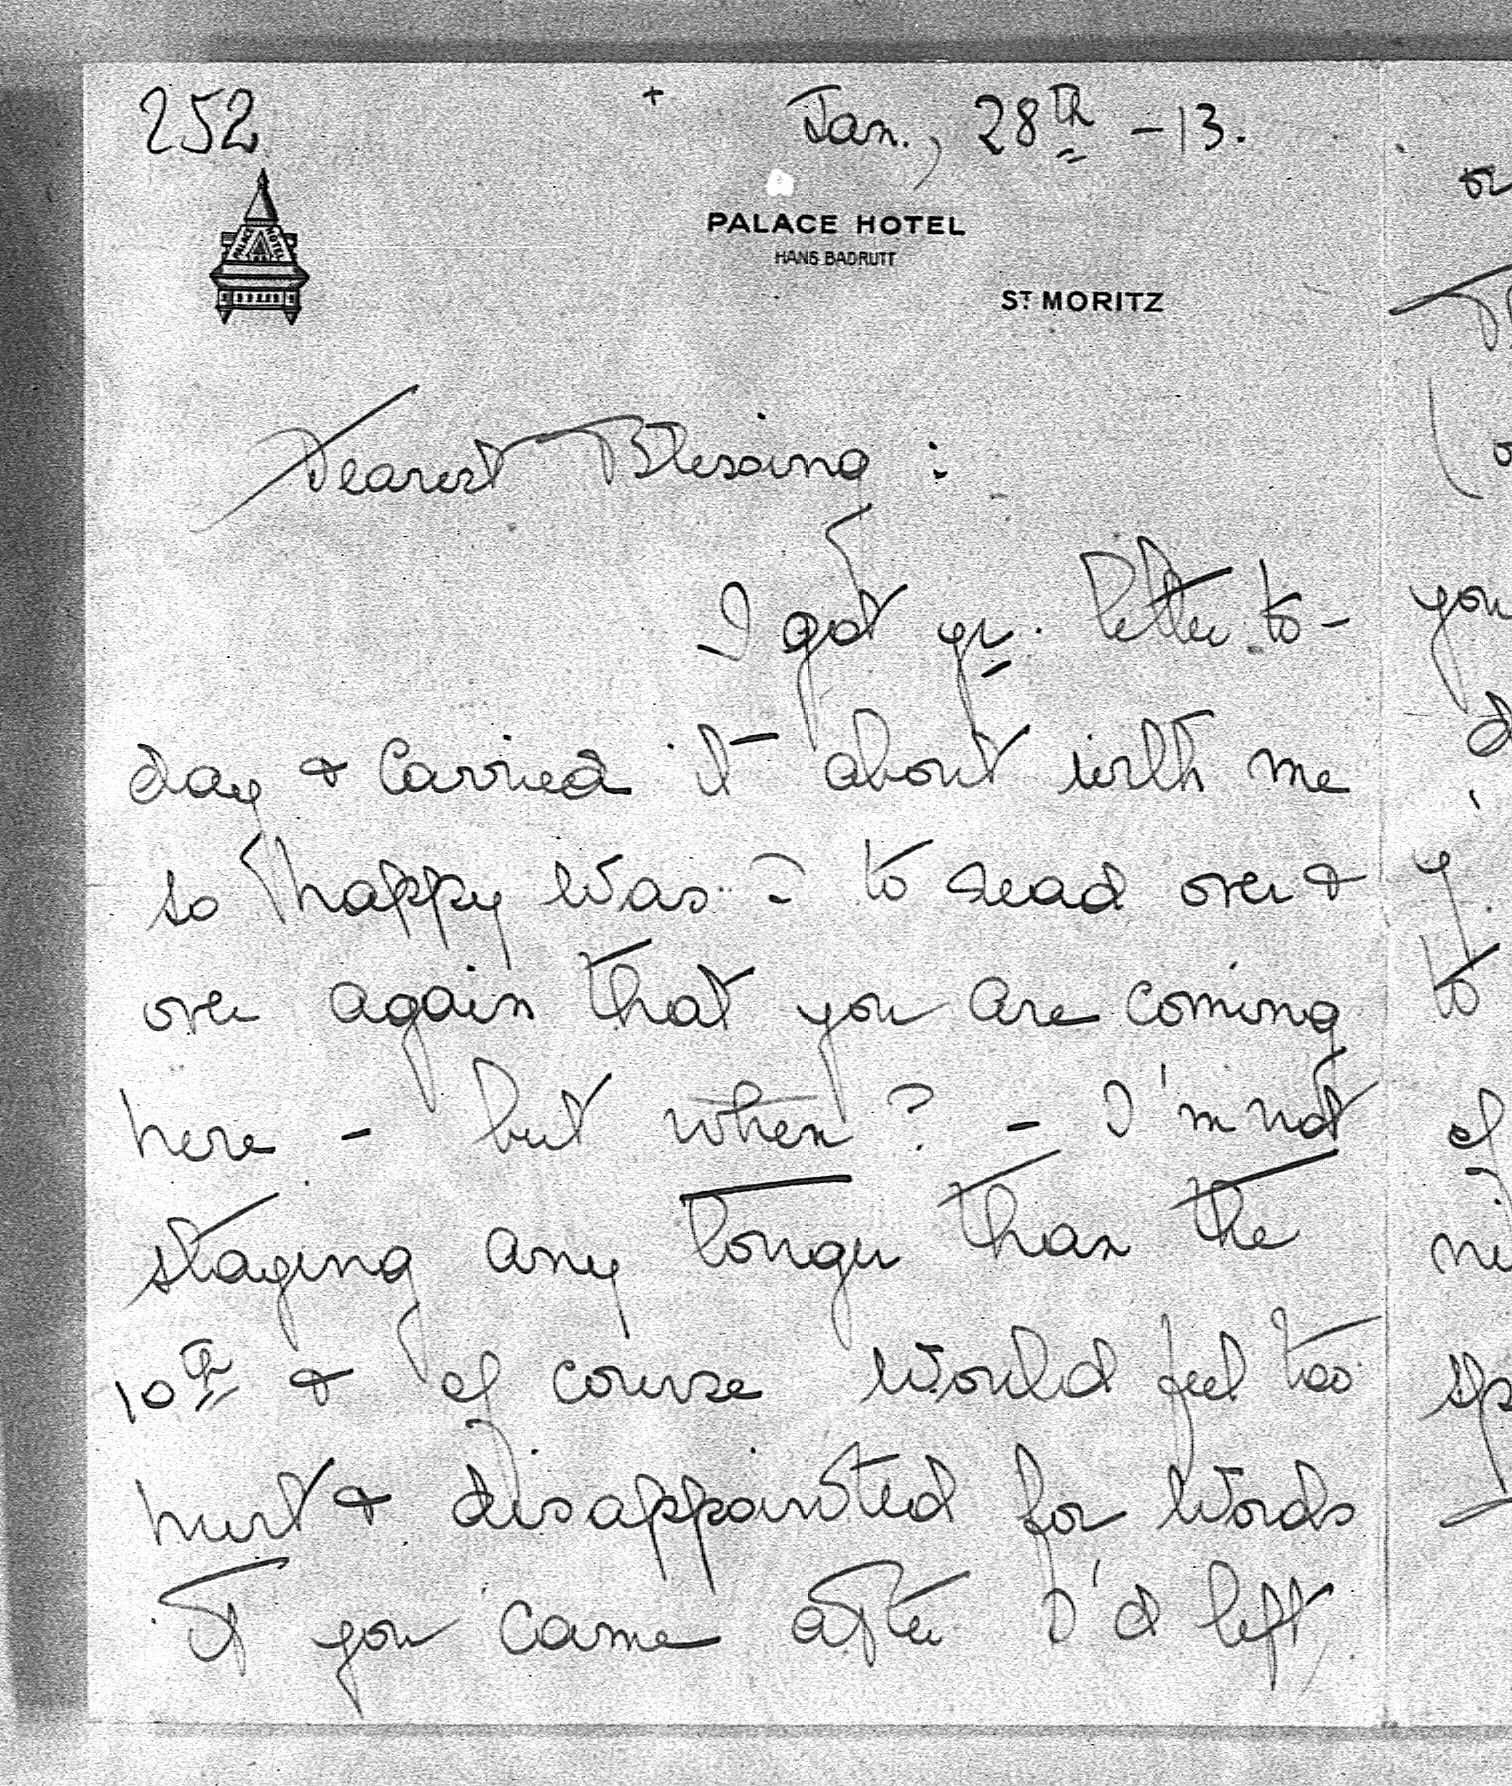 252
+ Jan., 28th - 13.
PALACE HOTEL
PALACE HOTEL
HANS BADRUTT
ST MORITZ
Dearest Blessing:
I got yr. letter to-
day & carried it about with me
so happy was I to read over &
over again that you are coming
here - but when? - I'm not
staying any longer than the
10th & of course would feel too
hurt & disappointed for words
if you came after I'd left,
or
you
to
of